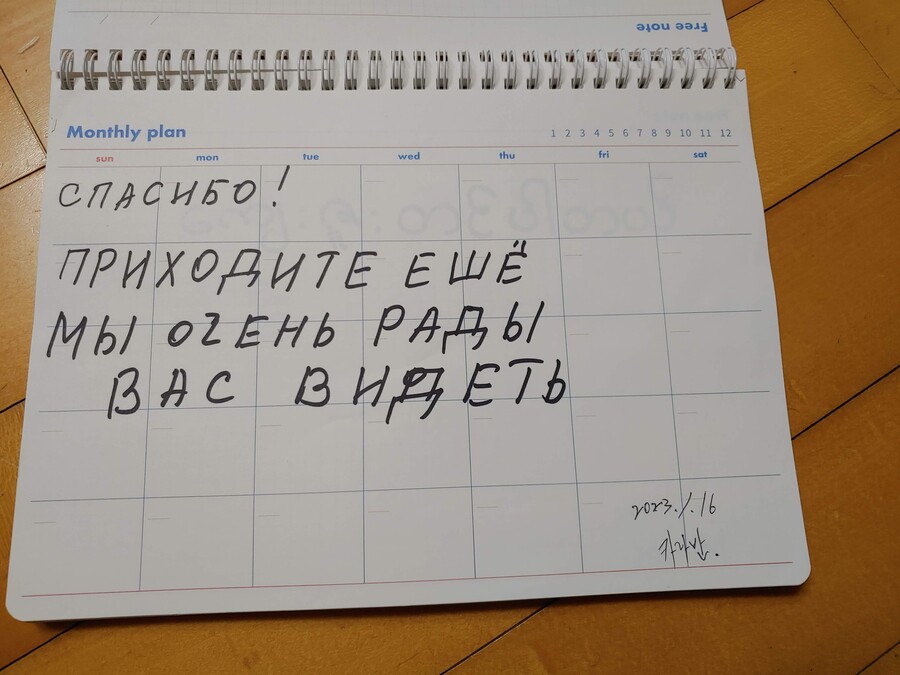 Free note
Monthly plan
1 2 3 4 5 6 7 8 9 10 11 12
sun mon tue wed thu fri sat
СПАСИБО!
ПРИХОДИТЕ ЕШЁ
МЫ ОЧЕНЬ РАДЫ
ВАС ВИДЕТЬ
2023.1.16